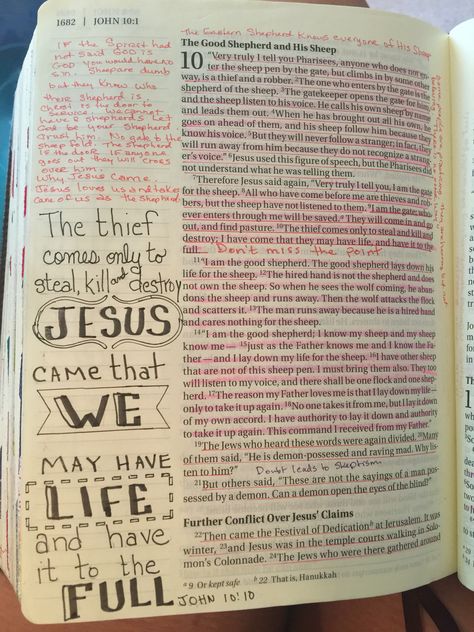 1682 | JOHN 10:1
The Eastern Shepherd knows everyone of His Sheep
IF the Spirit had
not said GOD is
GOD you would have no
sin. Sheep are dumb
but they know who
their shepherd is
Christ is the door to
service and cannot
have 2 shepherds. Let
God be your Shepherd
trust him. No gate to the
sheep fold. The shepherd
is the door. If anyone
goes out they will cross
over him.
Why Jesus came.
Jesus loves us and takes
care of us as the shepherd
The thief
comes only to
steal, kill and destroy
JESUS
CAME that
WE
MAY HAVE
LIFE
and have
it to the
FULL
JOHN 10:10
The Good Shepherd and His Sheep
10 "Very truly I tell you Pharisees, anyone who does not en-
ter the sheep pen by the gate, but climbs in by some other
way, is a thief and a robber. 2The one who enters by the gate is the
shepherd of the sheep. 3The gatekeeper opens the gate for him,
and the sheep listen to his voice. He calls his own sheep by name
and leads them out. 4When he has brought out all his own, he
goes on ahead of them, and his sheep follow him because they
know his voice. 5But they will never follow a stranger; in fact, they
will run away from him because they do not recognize a strang-
er's voice." 6Jesus used this figure of speech, but the Pharisees did
not understand what he was telling them.
7Therefore Jesus said again, "Very truly I tell you, I am the gate
for the sheep. 8All who have come before me are thieves and rob-
bers, but the sheep have not listened to them. 9I am the gate; who-
ever enters through me will be saved.a They will come in and go
out, and find pasture. 10The thief comes only to steal and kill and
destroy; I have come that they may have life, and have it to the
full. Don't miss the point
11"I am the good shepherd. The good shepherd lays down his
life for the sheep. 12The hired hand is not the shepherd and does
not own the sheep. So when he sees the wolf coming, he aban-
dons the sheep and runs away. Then the wolf attacks the flock
and scatters it. 13The man runs away because he is a hired hand
and cares nothing for the sheep.
14"I am the good shepherd; I know my sheep and my sheep
know me — 15just as the Father knows me and I know the Fa-
ther — and I lay down my life for the sheep. 16I have other sheep
that are not of this sheep pen. I must bring them also. They too
will listen to my voice, and there shall be one flock and one shep-
herd. 17The reason my Father loves me is that I lay down my life —
only to take it up again. 18No one takes it from me, but I lay it down
of my own accord. I have authority to lay it down and authority
to take it up again. This command I received from my Father."
19The Jews who heard these words were again divided. 20Many
of them said, "He is demon-possessed and raving mad. Why lis-
ten to him?" Doubt leads to skeptism
21But others said, "These are not the sayings of a man pos-
sessed by a demon. Can a demon open the eyes of the blind?"
Further Conflict Over Jesus' Claims
22Then came the Festival of Dedicationb at Jerusalem. It was
winter, 23and Jesus was in the temple courts walking in Solo-
mon's Colonnade. 24The Jews who were there gathered around
a 9 Or kept safe b 22 That is, Hanukkah